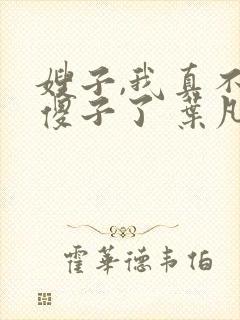 嫂子,我真不
傻子了 葉凡
霍華德韦伯